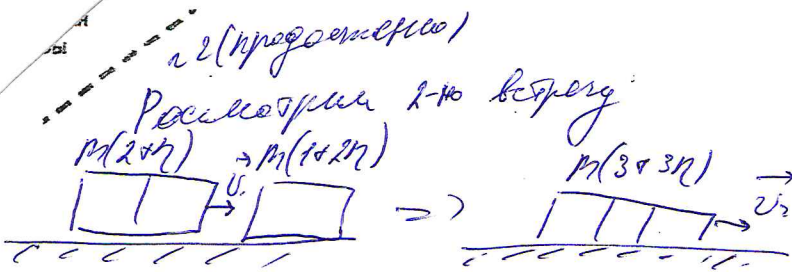 ы
№2 (продолжение)
Росмотрим 2-ю встречу
m(2+n) v₁ m(1+2n) => m(3+3n) v₂